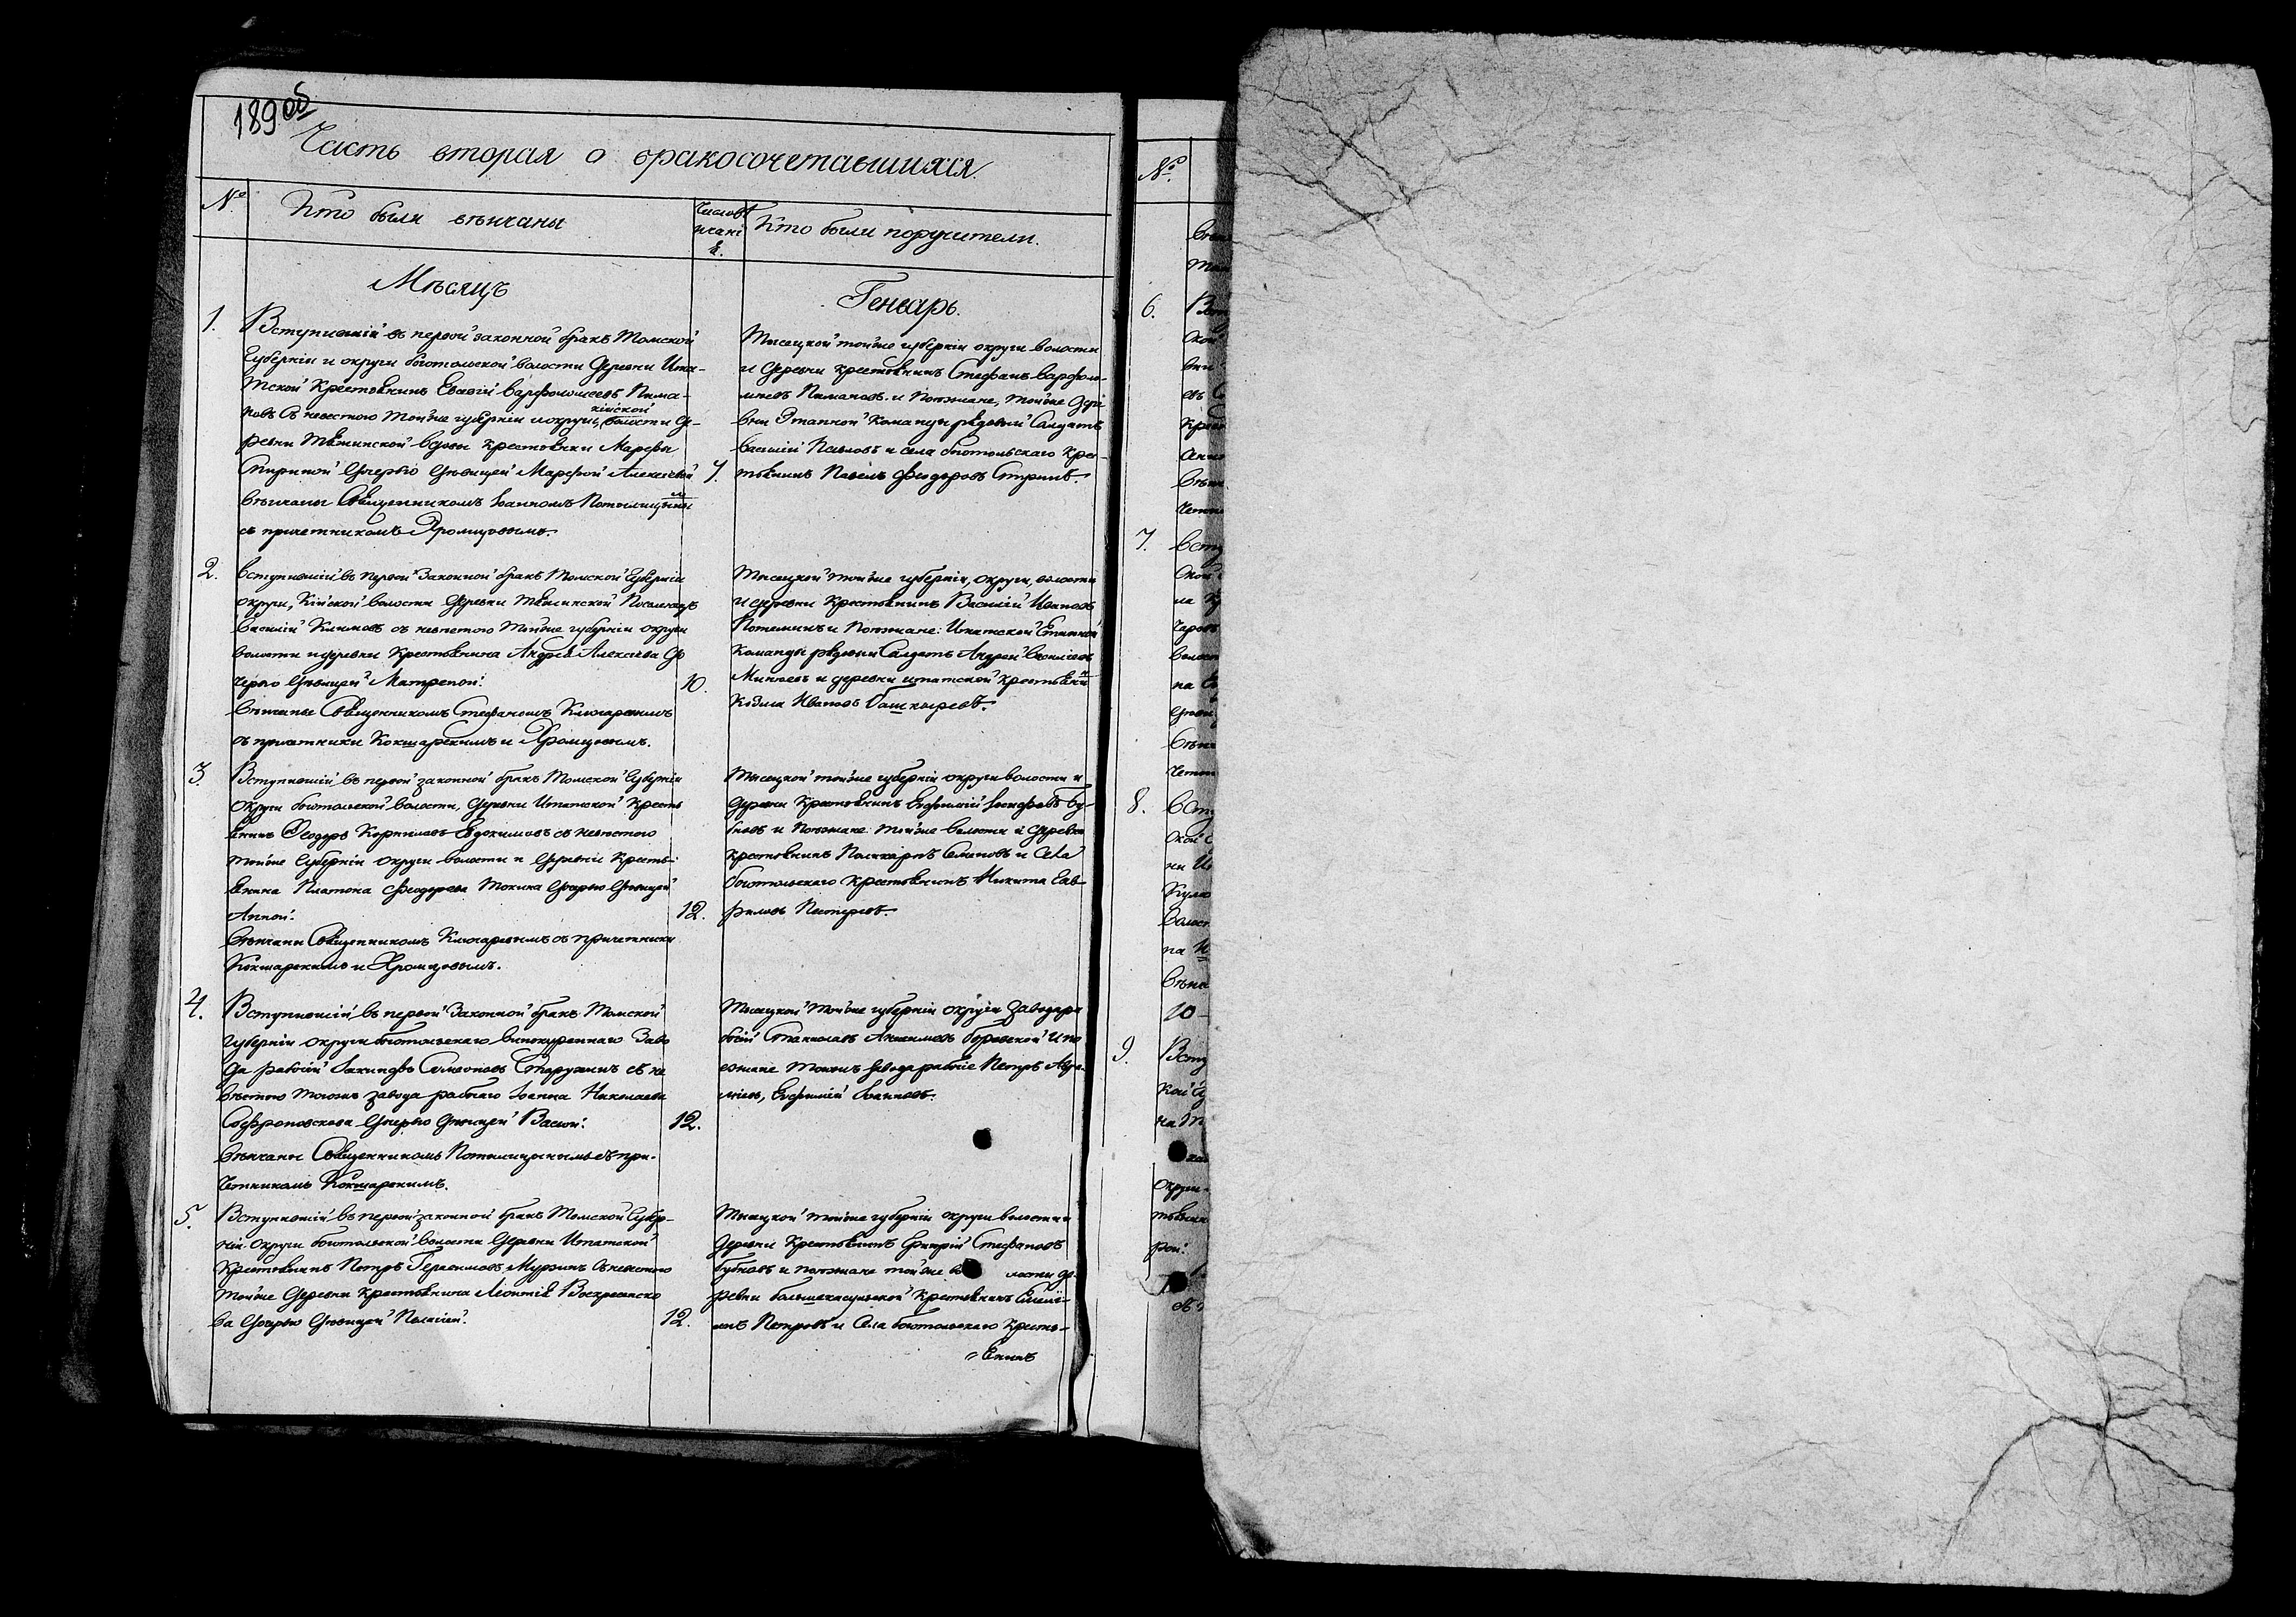 189об
Часть вторая о бракосочетавшихся.
№ Кто были вѣнчаны Число вѣнчанія. Кто были поручители.
Мѣсяцъ Генварь.
1. Вступившій въ первой законной бракъ Томской
Губерніи и округи боготольской волости Деревни Ита-
тской Крестьянинъ Евсевій Варфоломеевъ Пима-
новъ съ невестою тойже губерніи и округи, кійской волости Де-
ревни Тяжинской вдовы крестьянки Марфы
Спириной дочерью девицей Марфой Алексеевой 7.
вѣнчаны Священникомъ Іоанномъ Потылицынымъ
съ причетникомъ Хромцовымъ.
Тысяцкой тойже губерніи округи волости
и Деревни крестьянинъ Стефанъ варфоло-
меевъ Пимановъ. и Поезжане, тойже дере
вни Этапной Команды рядовый Салдатъ
василій Павловъ и села боготольскаго Крес-
тьянинъ Павелъ Феодоровъ
2. вступившій въ первой Законной бракъ Томской Губерніи
округи, Кійской волости Деревни Тяжинской Поселенецъ
василій Климовъ съ невестою тойже губерніи округи
волости и деревни Крестьянина Андрея Алексеева до
черью девицей Матреной: 10.
вѣнчаны Священникомъ Стефаномъ Ключаревымъ
съ причетники Кокшарскимъ и Хромцовымъ.
Тысяцкой тойже губерніи, округи, волости
и деревни Крестьянинъ Василій Ивановъ
Потемкинъ и Поезжане: Итатской Етапной
Команды рядовый Салдатъ Андрей василіевъ
Минеевъ и деревни итатской крестьянинъ
Козма Ивановъ Башкыревъ.
3. Вступившій въ первой законной бракъ Томской Губерніи
Округи боготольской волости, Деревни Итатской Кресть
янинъ Феодоръ Корниловъ Евдокимовъ съ невестою
тойже Губерніи округи волости и Деревни Кресть-
янина Платона Феодорова Токина дочерью девицей
Анной: 12.
вѣнчаны Священникомъ Ключаревымъ съ причетники
Кокшарскимъ и Хромцовымъ.
Тысяцкой тойже губерніи округи волости и
Деревни Крестьянинъ Евфимій Іосифовъ Бу-
бновъ и Поезжане: тойже волости и деревни
крестьянинъ Поликарпъ Семеновъ и Села
боготольскаго крестьянинъ Никита Гав-
риловъ Пестеревъ.
4. Вступившій въ первой Законной бракъ Томской
губерніи округи боготольскаго винокуреннаго Заво
да рабочій Іакинфъ Симеоновъ Старужинъ съ не
вѣстою тогожъ завода рабочаго Іоанна Николаева
Софроновскова дочерью девицей Васой: 12.
вѣнчаны Священникомъ Потылицынымъ съ при-
четникомъ Кокшарскимъ.
Тысяцкой тойже губерніи округи Завода ра
бочій Станиславъ Анкимовъ боровской и по
езжане Тогожъ завода рабочіе Петръ Авра-
міевъ, Евфимій Іоанновъ.
5. Вступившій въ первой законной бракъ Томской Губер-
ніи Округи боготольской волости Деревни Итатской
Крестьянинъ Петръ Герасимовъ Мурзинъ съ невестою
тойже Деревни Крестьянина Леонтія Воскресенско
ва дочерью девицей Пелагіей. 12.
Тысяцкой тойже губерніи округи волости и
Деревни Крестьянинъ Григорій Стефановъ
бубновъ и поезжане тойже во лости де-
ревни большекасульской Крестьянинъ
Петровъ и Села боготольскаго кресть-
янинъ
№
6.
7.
8.
10
9.